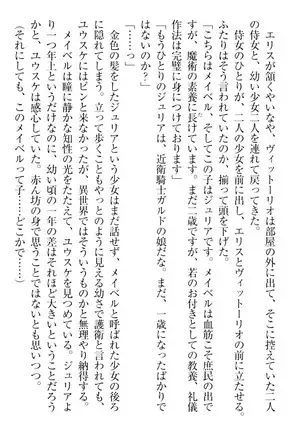 エリスが頷くやいなや、ヴィットーリオは部屋の外に出て、そこに控えていた二人
の侍女と、幼い少女二人を連れて戻ってきた。
侍女のひとりが、二人の少女を前に出し、エリスとヴィットーリオの前に立たせる。
ふたりはそう言われていたのか、揃って頭を下げた。
「こちらはメイベル、そしてこの子はジュリアです。メイベルは血筋こそ庶民の出で
すが、魔術の素養に長けています。まだ二歳ですが、若のお付きとしての教養、礼儀
作法は完璧に身につけております」
「もうひとりのジュリアは、近衛騎士ガルドの娘だな。まだ、一歳になったばかりで
はないのか？」
「……っ」
金色の髪をしたジュリアという少女はまだ話せず、メイベルと呼ばれた少女の後ろ
に隠れてしまう。立って歩くこともやっとのように見える幼さで護衛と言われても、
ユウスケにはピンと来なかったが、異世界ではそういうものかと無理やり納得する。
メイベルは瞳に静かな知性の光をたたえて、ユウスケを見つめている。ジュリアよ
り一つ年上というだけなのに、幼い頃の一年の差はそれほど大きいということだろう
か、ユウスケは感心していた。赤ん坊の身で思うことではないとも思いつつ。
（それにしても、このメイベルって子……どこかで……）